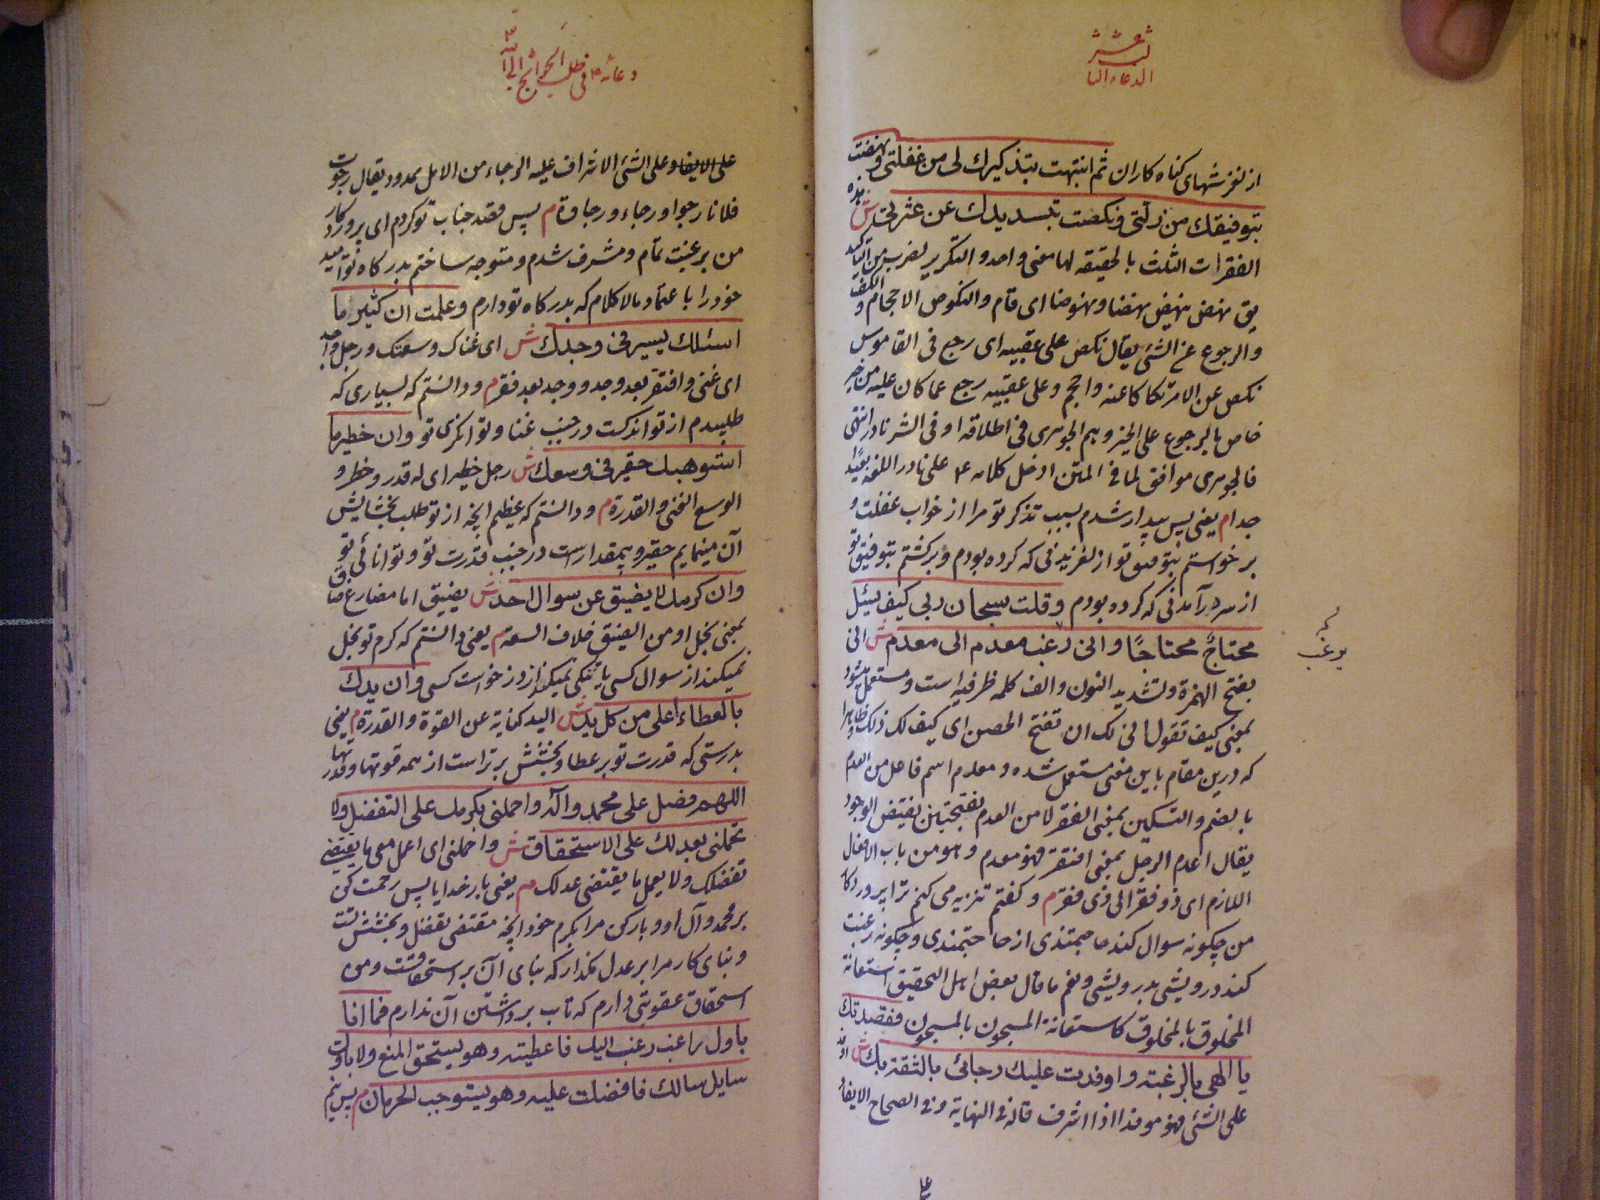 الدعاء الثالث عشر
از لغزشهای کناه کاران ثم انتبهت بتذکیرك لی من غفلتی ونهضت
بتوفیقك من زلتی ونکصت بتسدیدك عن عثرتی ش هذه
الفقرات الثلث بالحقیقه لها معنی واحد والتکریر لضرب من التاکید
یق نهض ینهض نهضا ونهوضا ای قام والنکوص الاحجام والکف
والرجوع عن الشئ یقال نکص علی عقبیه ای رجع فی القاموس
نکص عن الامر تکاکا عنه واحجم وعلی عقبیه رجع عما کان علیه من خیر
خاص بالرجوع علی الخیر وهم الجوهری فی اطلاقه او فی الشر نادر انتهی
فالجوهری موافق لما فی المتن ادخل کلامه ع علی نادر اللغة بعید
جدا م یعنی پس بیدار شدم بسبب تذکر تو مرا از خواب غفلت و
برخواستم بتوفیق تو از لغزیدنی که کرده بودم و برکشتم بتوفیق تو
از سر درآمدنی که کرده بودم وقلت سبحان ربی کیف یسئل
محتاج محتاجا وانی رغب معدم الی معدم ش انی
یرغب
بفتح الهمزة وتشدید النون والف کلمه ظرفیه است ومستعمل میشود
بمعنی کیف تقول انی لك ان تفتح الحصن ای کیف لك ذلك ظاهرا
که درین مقام باین معنی مستعمل شده ومعدم اسم فاعل من العدم
بالضم والتسکین بمعنی الفقر لا من العدم بفتحتین نقیض الوجود
یقال اعدم الرجل بمعنی افتقر فهو معدم وهو من باب الافعال
اللازم ای ذو فقر الی ذی فقر م وکفتم تنزیه می کنم ترا پروردکار
من چکونه سوال کند حاجتمندی از حاجتمندی وچکونه رغبت
کند درویشی بدرویشی ونعم ما قال بعض اهل التحقیق استعانة
المخلوق بالمخلوق کاستعانة المسجون بالمسجون فقصدتك
یا الهی بالرغبة واوفدت علیك رجائی بالثقة بك ش اوفد
علی الشئ فهو موفد اذا اشرف قاله فی النهایة وفی الصحاح الایفاد
دعائه ع فی طلب الحوائج الی الله
علی الایفاد علی الشئ الاشراف علیه الرجاء من الامل ممدود یقال رجوت
فلانا رجوا ورجاء ورجاوة م پس قصد جناب تو کردم ای پروردکار
من برغبت تمام ومشرف شدم ومتوجه ساختم بدرکاه تو امید
خود را باعتماد مالاکلام که بدرکاه تو دارم وعلمت ان کثیر ما
اسئلك یسیر فی وجدك ش ای غناك وسعتك ورجل واجد
ای غنی وافتقر بعد وجد ووجد بعد فقر م ودانستم که بسیاری که
طلبیدم از تو اندکست در جنب غنا وتوانکری تو وان خطیر ما
استوهبك حقیر فی وسعك ش رجل خطیر ای له قدر وخطر و
الوسع الغنی والقدرة م ودانستم که عظیم آنچه از تو طلب بخشایش
آن مینمایم حقیر وبیمقدار است در جنب قدرت تو وتوانائی تو
وان کرمك لا یضیق عن سوال احد ش یضیق اما مضارع ضاق
بمعنی بخل او من الضیق خلاف السعة م یعنی دانستم که کرم تو بخل
نمیکند از سوال کسی یا تنکی نمیکند از درخواست کسی وان یدك
بالعطاء اعلی من کل ید ش الید کنایة عن القوة والقدرة م یعنی
بدرستی که قدرت تو بر عطا وبخشش برتر است از همه قوتها وقدرتها
اللهم فصل علی محمد وآله واحملنی بکرمك علی التفضل ولا
تحملنی بعدلك علی الاستحقاق ش واحملنی ای اعمل معی ما یقتضی
تفضلك ولا یعمل ما یقتضی عدلك م یعنی بار خدایا پس رحمت کن
بر محمد وآل او وبار کن مرا بکرم خود آنچه مقتضی تفضل وبخشش تست
وبنای کار مرا بر عدل مکذار که بنای آن بر استحقاقست ومن
استحقاق عقوبتی دارم که تاب برداشتن آن ندارم فما انا
باول راغب رغب الیك فاعطیته وهو یستحق المنع ولا باول
سایل سالك فافضلت علیه وهو یستوجب الحرمان م پس نیم
علی